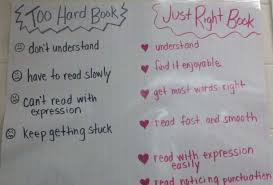 Too Hard Book
don't understand
have to read slowly
can't read with
expression
keep getting stuck
Just Right Book
understand
find it enjoyable
get most words right
read fast and smooth
read with expression
easily
read noticing punctuation